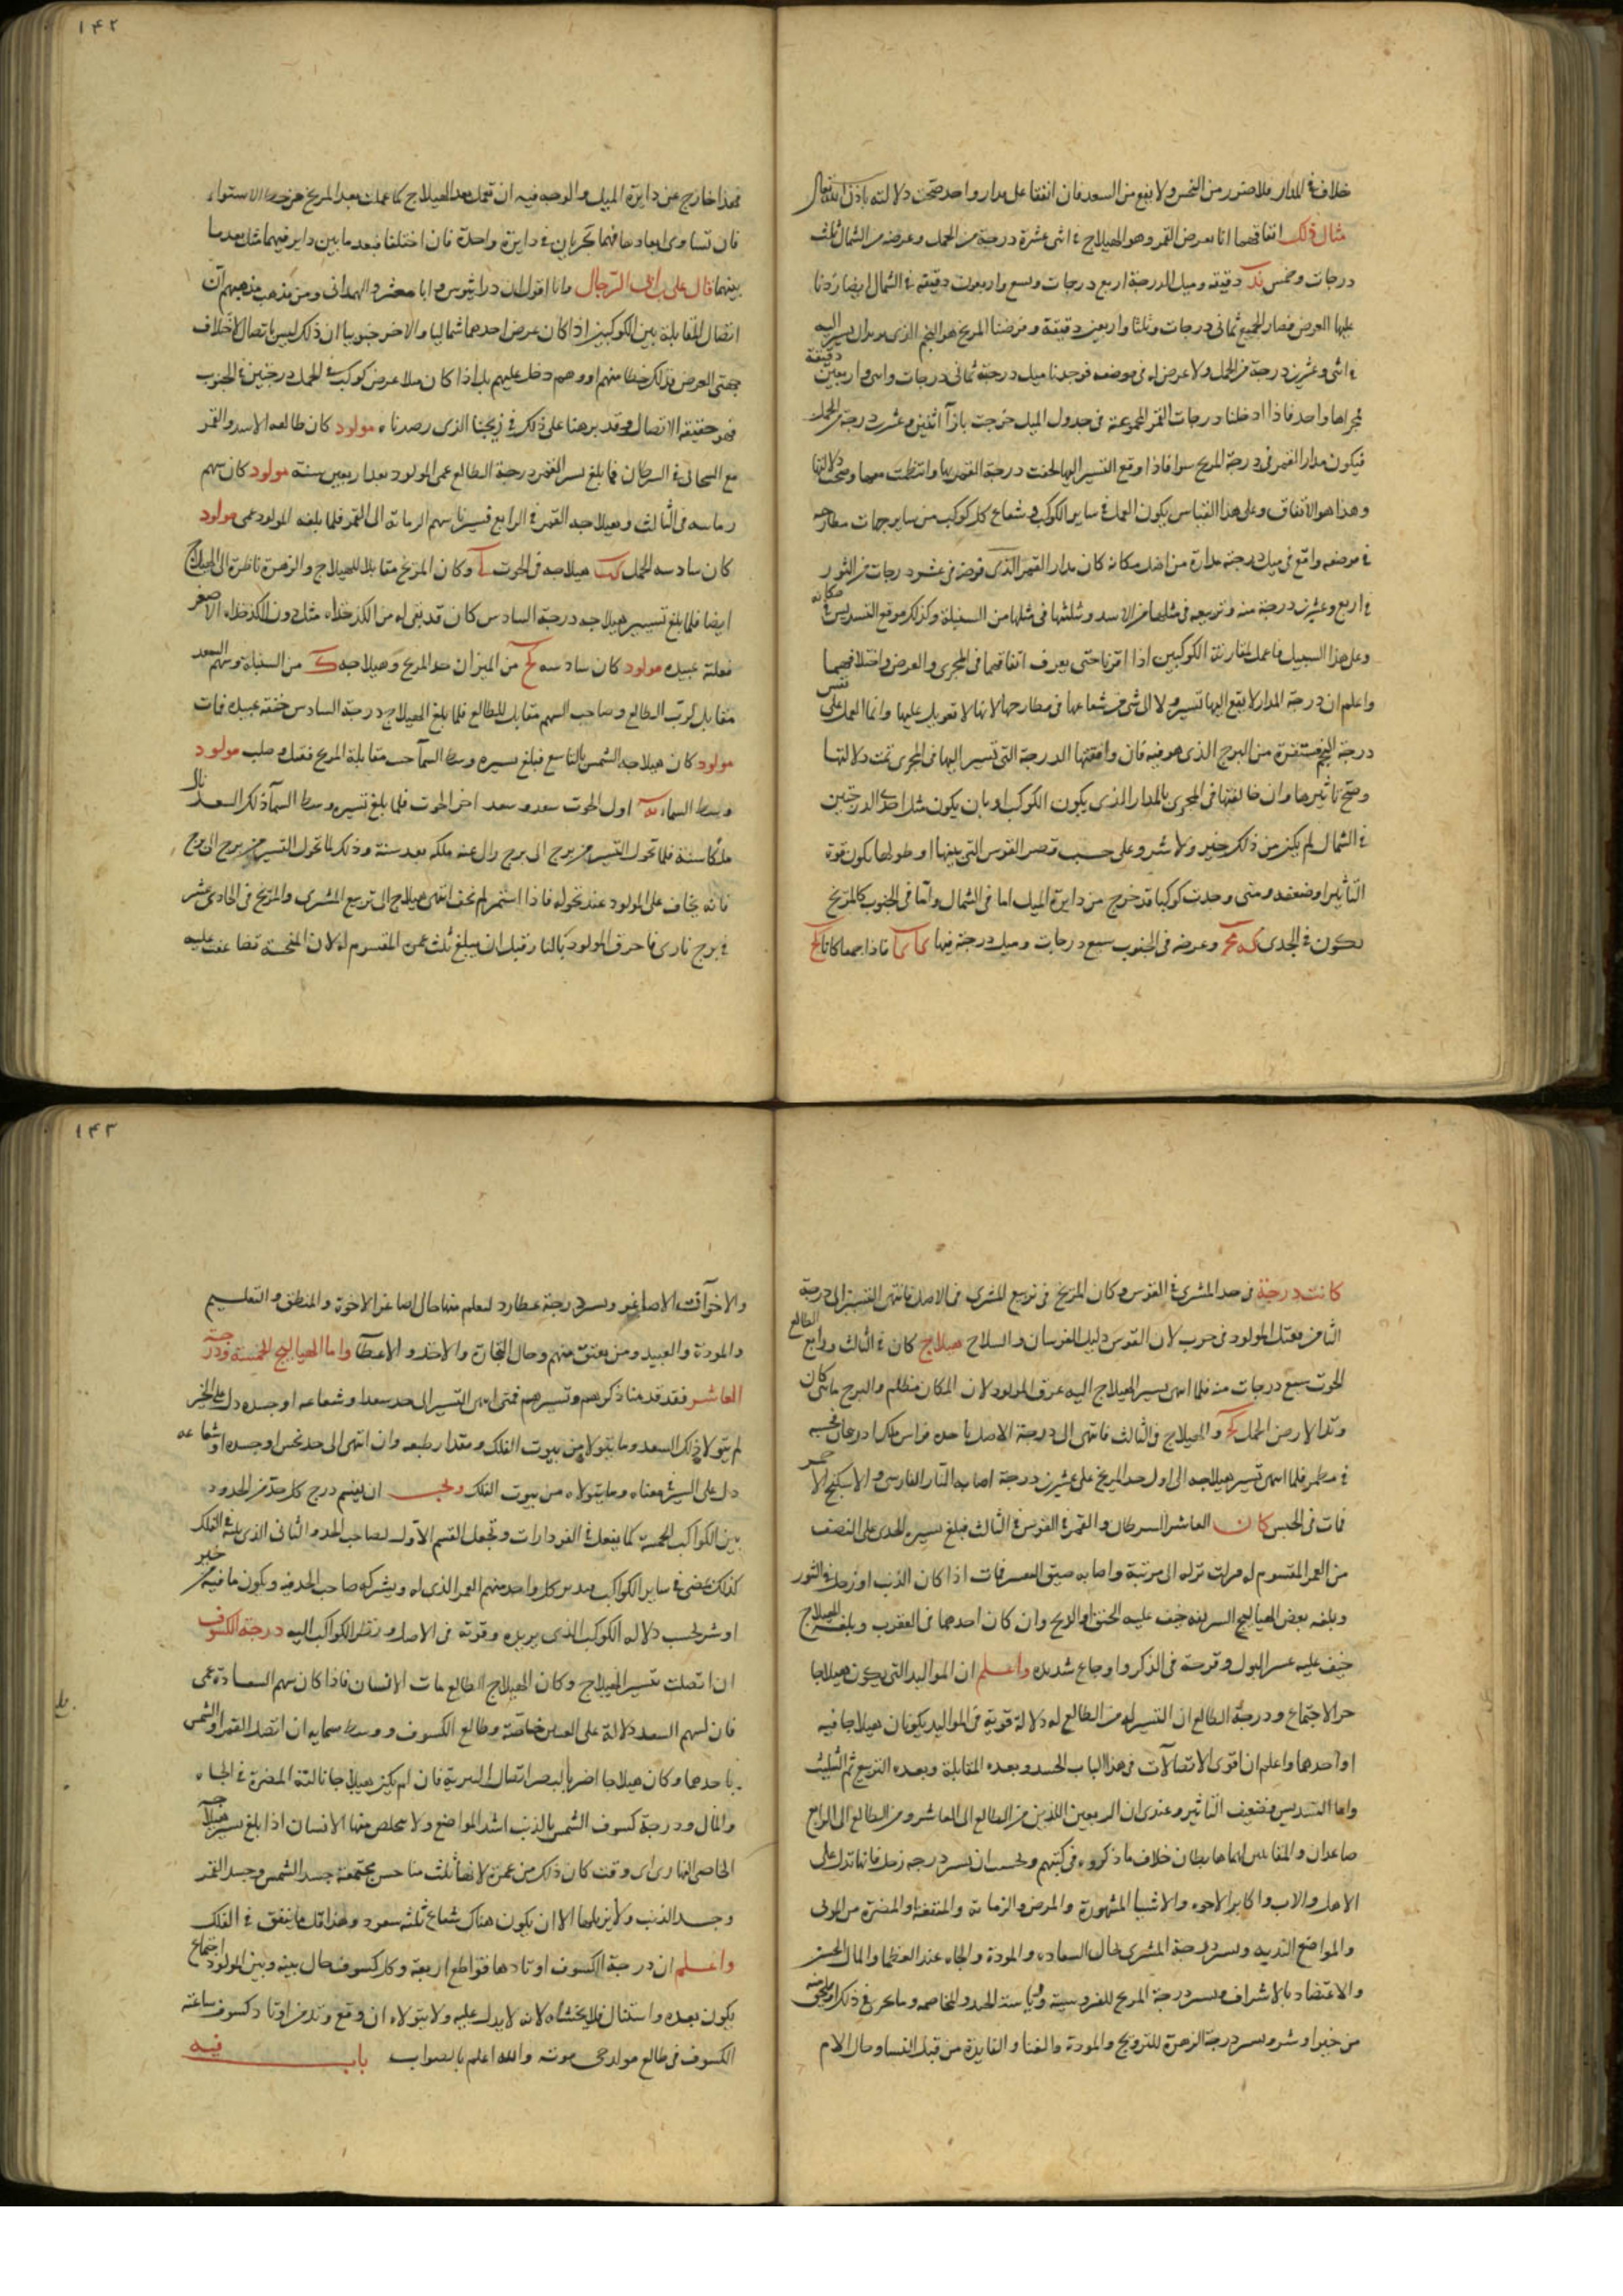 خلاف في المدار فلا ضرر من النحس ولا نفع من السعد فان اتفقا على مدار واحد صحت دلالته باذن الله تعالى
مثال ذلك اتفاقهما انا بعرض القمر وهو الهيلاج في اثنى عشرة درجة من الحمل وعرضه من الشمال ثلث
درجات وخمس دقيقة وميل الدرجة اربع درجات وتسع واربعون دقيقة في الشمال ايضا زدنا
عليها العرض فصار الجميع ثمانى درجات وثلثا واربعين دقيقة وفرضنا المريخ هو النجم الذى يريد ان يسير اليه
في اثنى وعشرين درجة من الحمل ولا عرض له فى موضعه فوجدنا ميل درجة ثمانى درجات واربعين دقيقة
مجراها واحد فاذا ادخلنا درجات القمر المجموعة فى جدول الميل خرجت بازآ اثنين وعشرين درجة من الحمل
فيكون مدار القمر فى درجة المريخ سوا فاذا وقع التسيير اليها لحقت درجة القمر بها وانتظمت معها وصحت دلالتها
وهذا هو الاتفاق وعلى هذا القياس يكون العمل في ساير الكواكب وفي شعاع كل كوكب من ساير جهات مطارحه
في موضعه واقع فى ميل درجة مداره من افضل مكانه كان مدار القمر الذى فرضه فى عشر درجات من الثور
في اربع وعشرين درجة منه وتربيعه فى مثلها من الاسد وثلثها فى مثلها من السنبلة وكذلك موقع التسديس في مكانه
وعلى هذا السبيل فاعمل لمقارنة الكوكبين اذا اقترنا حتى يعرف اتفاقهما فى المجرى والعرض واختلافهما
واعلم ان درجة المدار لا يقع اليها تسيير ولا الى شى من شعاعها فى مطارحها لانها لا تعويل عليها وانما العمل على نفس
درجة النجم مستقرة من البرج الذى هو فيه فان وافقتها الدرجة التى تسير اليها فى المجرى تمت دلالتها
وصح تاثيرها وان خالفتها فى المجرى بالمدار الذى يكون الكوكب او بان يكون مثل احدى الدرجتين
في الشمال لم يكن من ذلك خير ولا شر وعلى حسب قصر القوس التى بينهما او طولها يكون قوة
التأثير او ضعفه ومتى وجدت كوكبا قد خرج من دايرة الميل اما فى الشمال واما فى الجنوب كالمريخ
يكون في الجدى كه وعرضه فى الجنوب سبع درجات وميل درجته فيها فاذا جمعا كانا كح
فهذا خارج عن دايرة الميل والوجه فيه ان تعمل بعد الهيلاج كما عملت بعد المريخ عن خط الاستواء
فان تساوى ابعادهما فهما يجريان في دايرة واحدة فان اختلفا فبعد ما بين دايرتيهما مثل بعد ما
بينهما قال على بن ابى الرجال وانا اقول ان دراثيوس وابا معشر والهمدانى ومن يذهب مذهبهم ان
اتصال المقابلة بين الكوكبين اذا كان عرض احدهما شماليا والاخر جنوبيا ان ذلك ليس باتصال لاختلاف
جهتى العرض وذلك خطا منهم او وهم دخل عليهم بل اذا كان ملا عرض كوكب في الحمل درجتين في الجنوب
فهو حقيقة الاتصال وقد برهنا على ذلك في زيجنا الذى رصدناه مولود كان طالعه الاسد والقمر
مع السحابى في السرطان فما بلغ تسيير القمر درجة الطالع عمى المولود بعد اربعين سنة مولود كان سهم
زمانه فى الثالث وهيلاجه القمر في الرابع فسيرنا سهم الزمانة الى القمر فلما بلغه المولود عمى مولود
كان سادسه الحمل كب هيلاجه فى الحوت وكان المريخ مقابلا للهيلاج والزهرة ناظرة الى الهيلاج
ايضا فلما بلغ تسيير هيلاجه درجة السادس كان قد بقى له من الكدخداه مثل دون الكدخداه الاصغر
فقتله عبيده مولود كان سادسه كح من الميزان حد المريخ وهيلاجه من السنبلة وسهم السعد
مقابل لرب الطالع وصاحب السهم مقابل للطالع فلما بلغ الهيلاج درجة السادس خنقه عبيده فمات
مولود كان هيلاجه الشمس بالتاسع فبلغ تسييره وسط السمآ مقابلة المريخ فقتل وصلب مولود
وسط السماء اول الحوت سعد وسعد اخر الحوت فلما بلغ تسييره وسط السمآ ذلك السعد نال
ملكا سنة فلما تحول التسيير من برج الى برج زال عنه ملكه بعد سنة وذلك لما تحول التسيير من برج الى برج
فانه يخاف على المولود عند تحوله فاذا استمر لم يخف انتهى هيلاج الى تربيع المشترى والمريخ فى الحادى عشر
في برج نارى فاحرق المولود بالنار قبل ان يبلغ ثلث عمره المقسوم له لان المنحسة تضاعفت عليه
كانت درجة فى حد المشترى في القوس وكان المريخ فى تربيع المشترى فى الاصل فانتهى التسيير الى درجة
الثامن فقتل المولود فى حرب لان القوس دليل الفرسان والسلاح هيلاج كان في الثالث ورابع الطالع
الحوت سبع درجات منه فلما انتهى تسيير الهيلاج اليه غرق المولود لان المكان مظلم والبرج مائى كان
وتد الارض الحمل كح والهيلاج فى الثالث فانتهى الى درجة الاصل
في مطمر فلما انتهى تسيير هيلاجه الى اول حد المريخ على عشرين درجة اصابه النار الفارسى
فمات فى الحبس كان العاشر السرطان والقمر في القوس في الثالث فبلغ تسييره الجدى على النصف
من العمر المقسوم له فزلت نزله الى مرتبة واصابه ضيق النفس فمات اذا كان الذنب او زحل في الثور
وبلغه بعض الهياليج السريعة خيف عليه الخنق او الريح وان كان احدهما فى العقرب وبلغه الهيلاج
خيف عليه عسر البول وقرحة فى الذكر واوجاع شديدة واعلم ان المواليد التى يكون هيلاجها
جزء الاجتماع ودرجة الطالع ان التسيير له من الطالع له دلالة قوية فى المواليد يكونان هيلاجا فيه
او احدهما واعلم ان اقوى الاتصالات فى هذا الباب الجسد وبعده المقابلة وبعده التربيع ثم التثليث
واما التسديس فضعيف التأثير وعندى ان الربعين اللذين من الطالع الى العاشر ومن الطالع الى الرابع
صاعدان والمقابلين لهما هابطان خلاف ما ذكروه فى كتبهم ويجب ان تسير درجة زحل فانها تدل على
الاهل والاب واكابر الاخوة والاشيا المشهورة والمرض والزمانة والمنفعة والمضرة من الموتى
والمواضع النديه وتسير درجة المشترى لحال السعاده والمودة والجاه عند العظما والمال الحسن
والاعتضاد بالاشراف وتسير درجة المريخ للفروسية وسياسة الجند والمخاصمه وما يجرى في ذلك
من خير او شر وتسير درجة الزهرة للتزويج والمودة والغنا والفايدة من قبل النسا وحال الام
والاخوات الاصاغر وتسير درجة عطارد لتعلم منها حال اصاغر الاخوة والمنطق والتعليم
والمودة والعبيد ومن يعتق منهم وحال التجارة والاخذ والاعطآ واما الهياليج الخمسة ودرجة
العاشر فقد قدمنا ذكرهم وتسييرهم فمتى انتهى التسيير الى حد سعد او شعاعه او جسده دل على الخير
لم يتولا ذلك السعد وما يتولاه من بيوت الفلك ومقدار طبعه وان انتهى الى حد نحس او جسده او شعاعه
دل على الشر معناه وما يتولاه من بيوت الفلك ويجب ان يقسم درج كل حد من الحدود
بين الكواكب الخمسة كما يفعل في الفردارات وتجعل القسم الاول لصاحب الحد والثانى الذى يليه في الفلك
كذلك تمضى في ساير الكواكب ويدبر كل واحد منهم العمر الذى له ويشركه صاحب الحد فيه ويكون ما فيه من خير
او شر بحسب دلالة الكوكب الذى يدبره وقوته فى الاصل ونظر الكواكب اليه درجة الكسوف
ان اتصلت بتسيير الهيلاج وكان الهيلاج الطالع مات الانسان فاذا كان سهم السعادة عمى
فان لسهم السعد دلالة على العينين خاصة وطالع الكسوف ووسط سمايه ان اتصل القمر او الشمس
باحدهما وكان هيلاجا اضر بالبصر اتصال السرية فان لم يكن هيلاجا نالته المضرة في الجاه
والمال ودرجة كسوف الشمس بالذنب اشد المواضع ولا يخلص منها الانسان اذا بلغ تسيير هيلاجه
الخاص النهارى اى وقت كان ذلك من عمره لانها ثلث مناحس مجتمعة جسد الشمس وجسد القمر
وجسد الذنب ولا يزيلها الا ان يكون هناك شعاع ثلثة سعود وهذا قل ما يتفق في الفلك
واعلم ان درجة الكسوف اوتادها قواطع اربعة وكل كسوف حال بينه وبين المولود اجتماع
يكون بعده واستقبال فلا يخشاه لانه لا يدل عليه ولا يتولاه ان وقع وتد من اوتاد كسوف ساعته
الكسوف فى طالع مولد خى موته والله اعلم بالصواب باب فيه
١٤٢
١٤٣